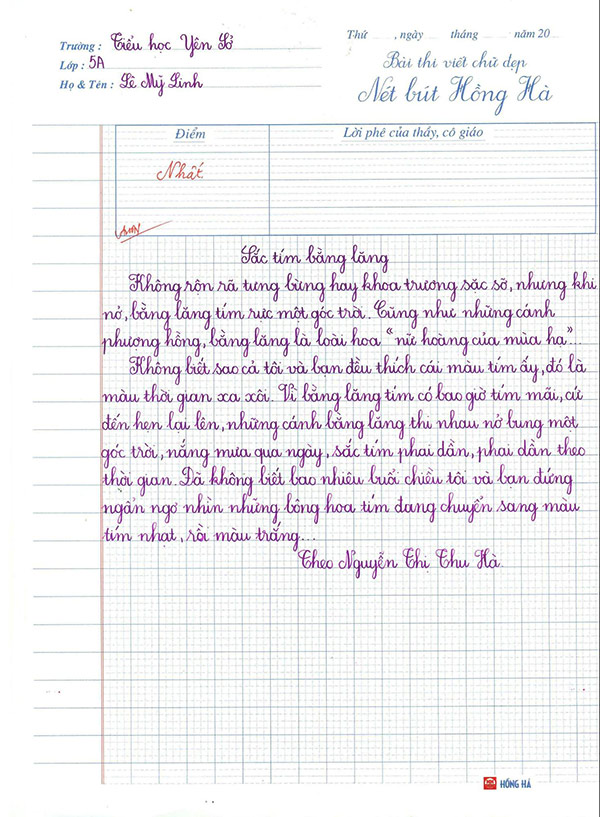 Trường : Tiểu học Yên Sở
Lớp : 5A
Họ & Tên : Lê Mỹ Linh
Thứ ....., ngày ..... tháng ..... năm 20 ....
Bài thi viết chữ đẹp
Nét bút Hồng Hà
Điểm
Lời phê của thầy, cô giáo
Nhất
Sắc tím bằng lăng
Không rộn rã tưng bừng hay khoa trương sặc sỡ, nhưng khi
nở, bằng lăng tím rực một góc trời. Cũng như những cánh
phượng hồng, bằng lăng là loài hoa "nữ hoàng của mùa hạ"...
Không biết sao cả tôi và bạn đều thích cái màu tím ấy, đó là
màu thời gian xa xôi. Vì bằng lăng tím có bao giờ tím mãi, cứ
đến hẹn lại lên, những cánh bằng lăng thi nhau nở bung một
góc trời, nắng mưa qua ngày, sắc tím phai dần, phai dần theo
thời gian. Đã không biết bao nhiêu buổi chiều tôi và bạn đứng
ngẩn ngơ nhìn những bông hoa tím đang chuyển sang màu
tím nhạt, rồi màu trắng...
Theo Nguyễn Thị Thu Hà.
HỒNG HÀ